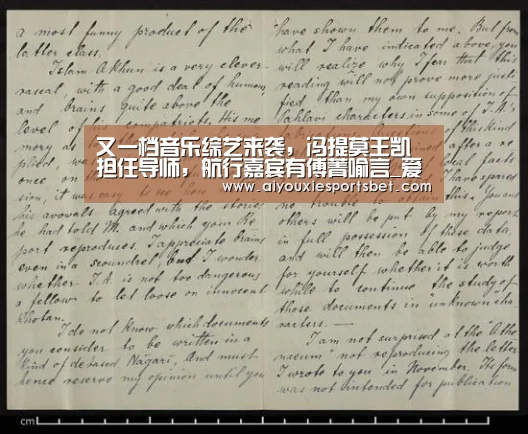 a most funny product of the
latter class.
Islam Akhun is a very clever
rascal, with a good deal of humour
and brains quite above the
level of his compatriots. His me
mory as to
once on
sion, it was easy to see how
his avowals agreed with the stories
he had told M. and which your Re
port reproduces. I appreciate brains
even in a scoundrel and I wonder
whether I.A. is not too dangerous
a fellow to let loose on innocent
Khotan.
I do not know which documents
you consider to be written in a
kind of debased Nagari, and must
hence reserve my opinion until you
have shown them to me. But from
what I have indicated above, you
will realize why I fear that this
reading will not prove more justi
fied than my own supposition of
Pahlavi characters in some of I.A.'s
of this kind
after a re
local facts
I have spared
no trouble to obtain this. You and
others will be put by my report
in full possession of these data,
and will then be able to judge
for yourself whether it is worth
while to continue the study of
those documents in "unknown cha
racters. —
I am not surprised at the Athe
naeum not reproducing the letter
I wrote to you in November. Its form
was not intended for publication
又一档音乐综艺来袭，冯提莫王凯
担任导师，航行嘉宾有傅菁喻言_爱
www.aiyouxiesportsbet.com/
cm